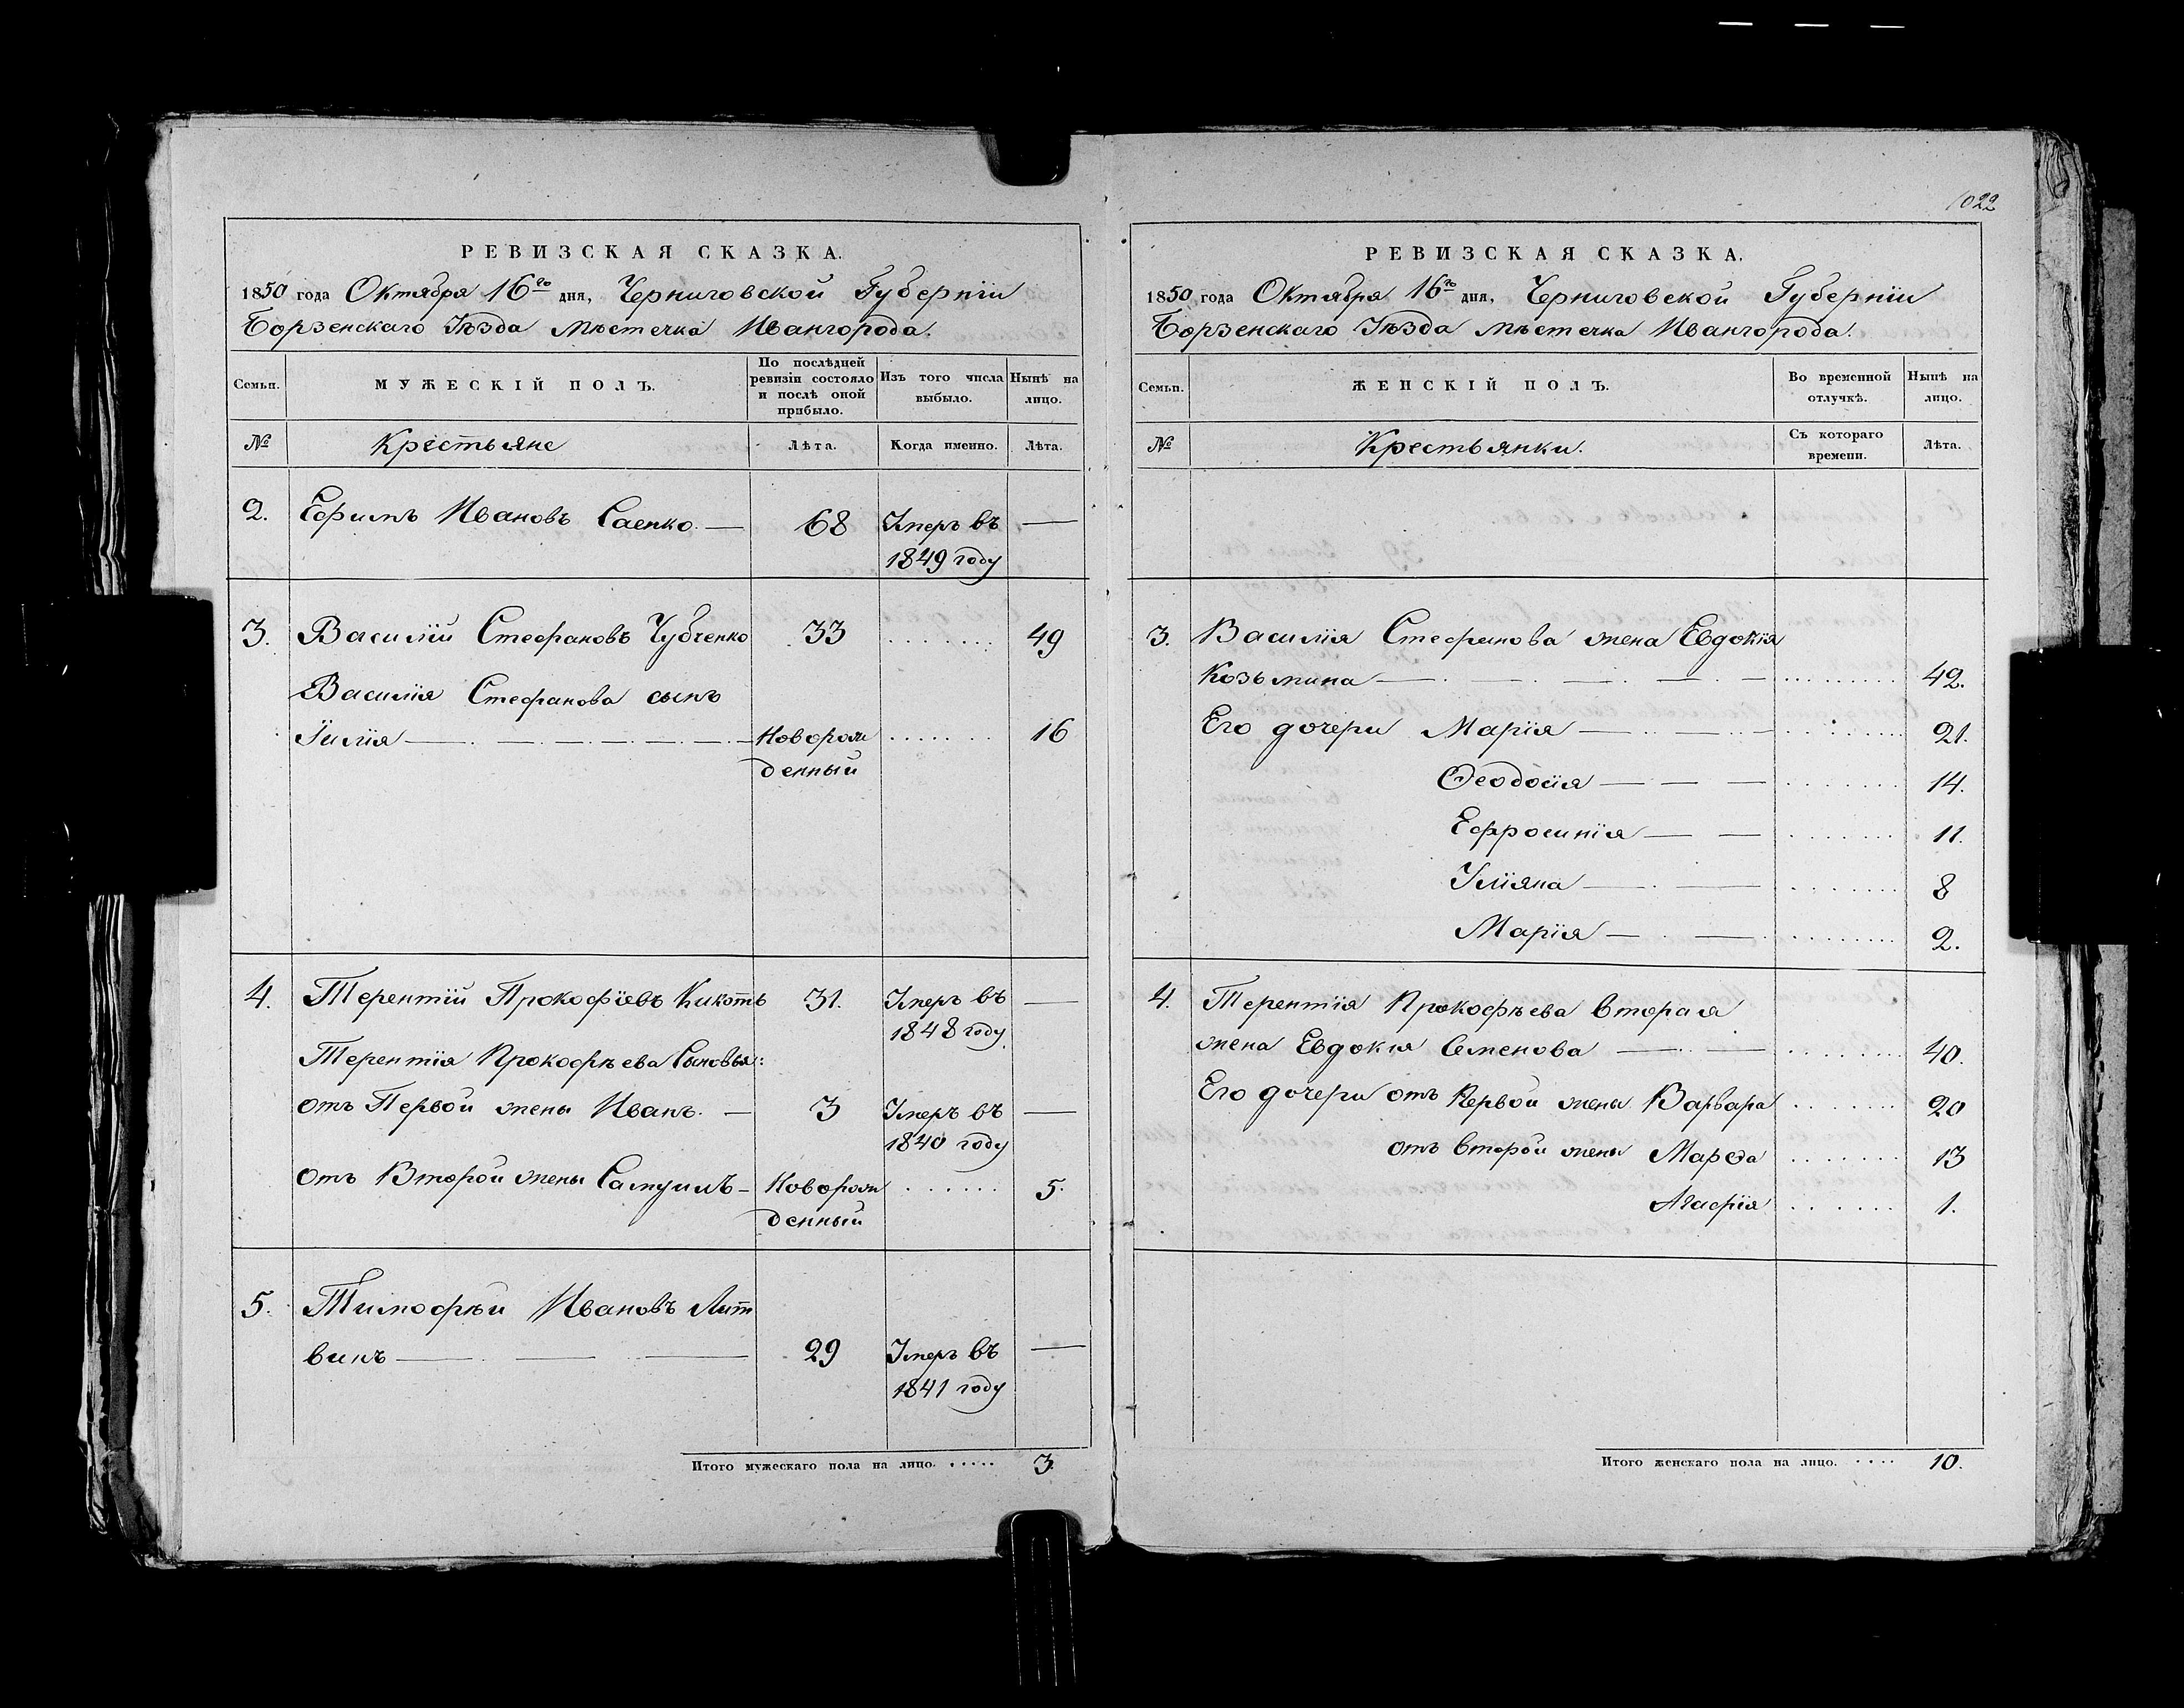 1022
РЕВИЗСКАЯ СКАЗКА.
1850 года Октября 16го дня, Черниговской Губерніи
Борзенскаго Уѣзда мѣстечка Ивангорода.
Семьи. МУЖЕСКІЙ ПОЛЪ. По послѣдней ревизіи состояло и послѣ оной прибыло. Изъ того числа выбыло. Нынѣ на лицо.
№ Крестьяне Лѣта. Когда именно. Лѣта.
2. Ефимъ Ивановъ Саенко. — 68 Умеръ въ —
1849 году
3. Василій Стефановъ Чубченко 33 ....... 49
Василія Стефанова сынъ
Илія — Новорож ....... 16
денный
4. Терентій Прокофіевъ Кикоть 31. Умеръ въ —
1848 году
Терентія Прокофѣева Сыновья:
отъ Первой жены Иванъ. — 3 Умеръ въ —
1840 году
отъ Второй жены Самуилъ — Новорож ...... 5.
денный
5. Тимофѣй Ивановъ Лит
винъ — 29 Умеръ въ —
1841 году
Итого мужескаго пола на лицо. ..... 3.
РЕВИЗСКАЯ СКАЗКА.
1850 года Октября 16го дня, Черниговской Губерніи
Борзенскаго Уѣзда мѣстечка Ивангорода.
Семьи. ЖЕНСКІЙ ПОЛЪ. Во временной отлучкѣ. Нынѣ на лицо.
№ Крестьянки. Съ котораго времени. Лѣта.
3. Василія Стефанова жена Евдокія
Козьмина — ........ 42.
Его дочери Марія — ....... 21.
Ѳеодосія — ....... 14.
Ефросинія — ....... 11.
Уліяна — ....... 8
Марія — ........ 2.
4. Терентія Прокофѣева вторая
жена Евдокія Семенова — ....... 40.
Его дочери отъ Первой жены Варвара ....... 20
отъ второй жены Марѳа ....... 13
Агафія ...... 1.
Итого женскаго пола на лицо. .... 10.